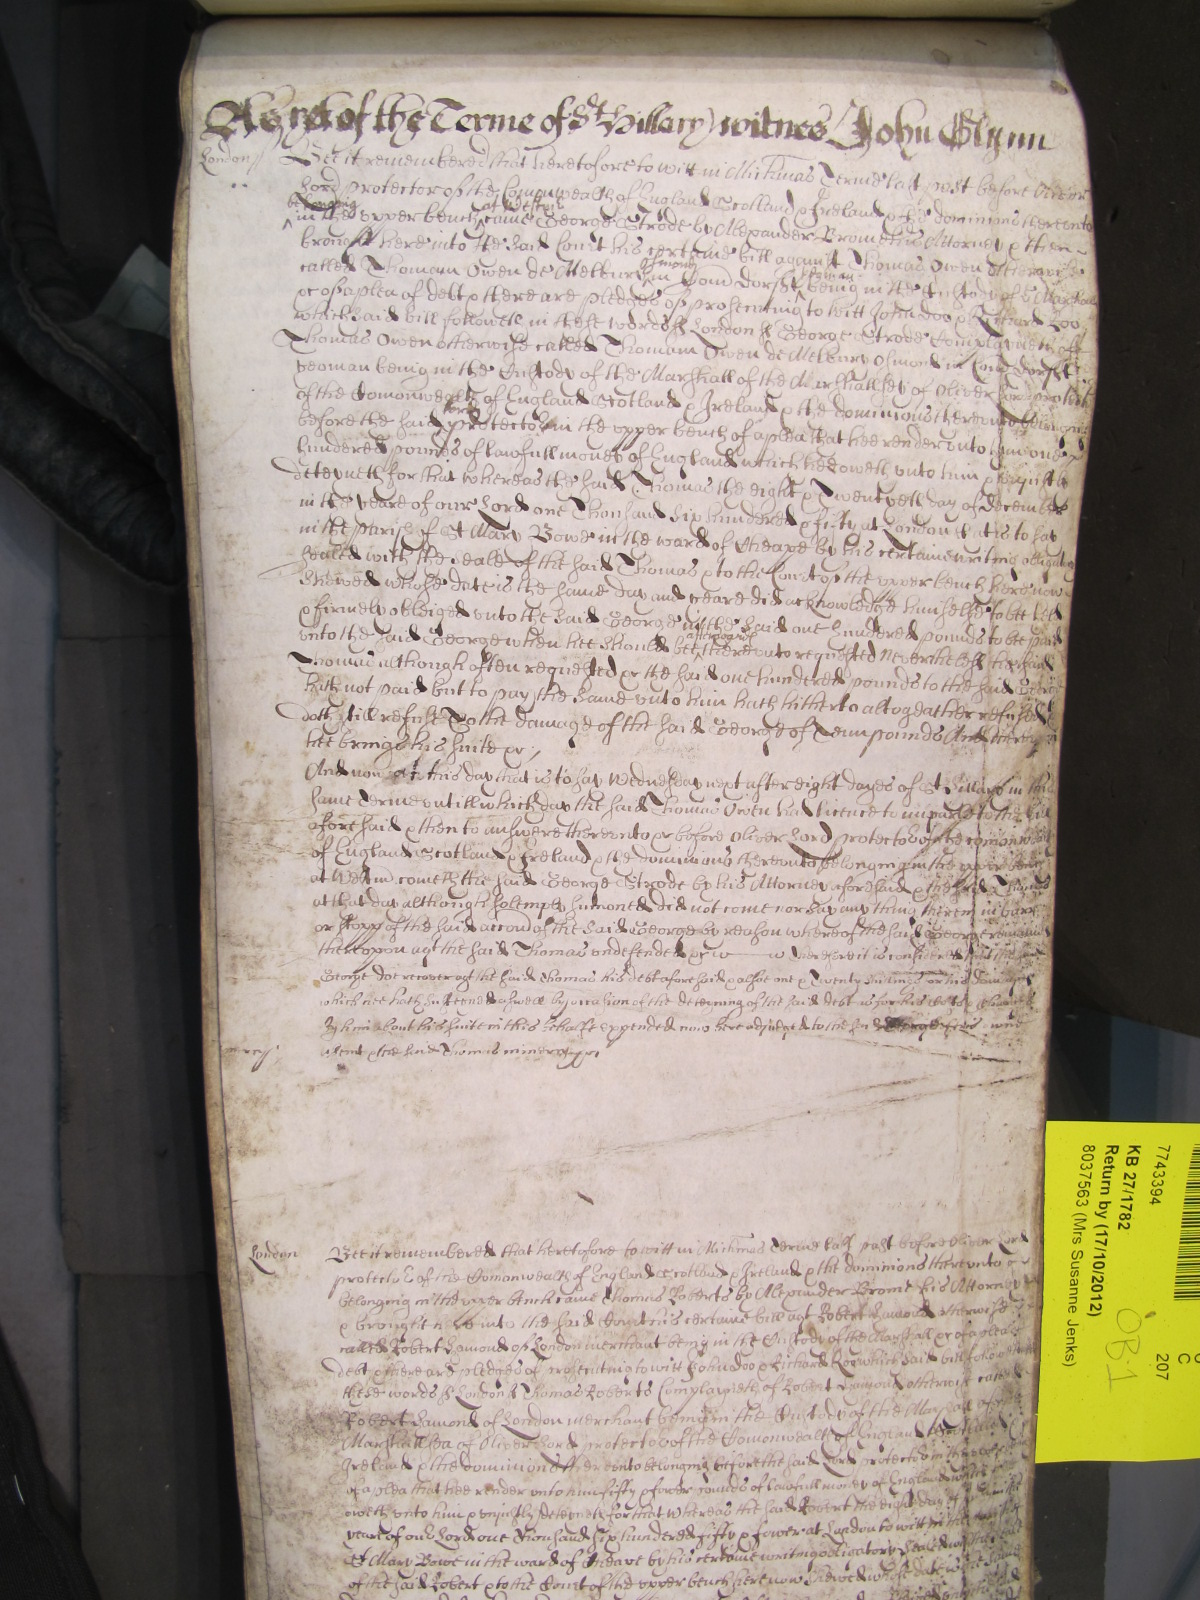 As yet of the Terme of St Hillary witnes John Glynn
London
Bee it remembered that heretofore to witt in Michmas Terme last past before Oliver
Lord protector of the Comonwealth of England Scotland & Ireland & the dominions thereunto
belonging at Westmr
in the upper bench came George Strode by Alexander Brome his Attorney & then
brought here into the said Court his certaine bill against Thomas Owen otherwise
called Thomam Owen de Melbury Osmond in Com Dorsett yeoman being in the Custody of the Marshall
&c of a plea of debt & there are pledges of prosecuting to witt John Doo & Richard Roo
which said bill followeth in these words ss London ss George Strode Complayneth of
Thomas Owen otherwise called Thomam Owen de Melbury Osmond in Com Dorsett
yeoman being in the Custody of the Marshall of the Marshallsey of Oliver Lord protector
of the Comonwealth of England Scotland & Ireland & the dominions thereunto belonging
before the said Lord protector in the upper bench of a plea that hee render unto him one
hundered pounds of lawfull money of England which hee oweth unto him & uniustly
deteyneth for that whereas the said Thomas the eight & Twentyeth day of December
in the yeare of our Lord one Thousand six hundered & fifty at London that is to say
in the parish of St Mary Bowe in the ward of Cheape by his certaine writing obligatory
sealed with the seale of the said Thomas & to the Court of the upper bench here now
shewed whose date is the same day and yeare did acknowledge himselfe to be held
& firmely obleiged unto the said George in the said one hundered pounds to be paid
unto the said George when hee should bee afterwards thereunto requested Neverthelesse the said
Thomas although often requested &c the said one hundered pounds to the said George
hath not paid but to pay the same unto him hath hitherto altogeather refused &
doth still refuse To the damage of the said George of Tenn pounds And thereupon
hee brings his suite &c
And now at this day that is to say Wednesday next after eight dayes of St Hillary in this
same Terme untill which day the said Thomas Owen had licence to imparle to the bill
aforesaid & then to answere thereunto &c before Oliver Lord protector of the Comonwealth
of England Scotland & Ireland & the dominions thereunto belonging in the upper bench
at Westm cometh the said George Strode by his Attorney aforesaid & the said Thomas
at that day although solemply sumoned did not come nor say any thing therein in barr
or stopp of the said accon of the said George by reason whereof the said George remaineth
thereupon agt the said Thomas undefended &c w w Therefore it is considered that the said
George doe recover agt the said Thomas his debt aforesaid & alsoe one & Twenty shillings for his damages
which hee hath susteened aswell by occasion of the deteining of the said debt as for his costs & charges
by him about his suite in this behalfe expended now here adjudged to the said George with his
mercy
assent & the said Thomas in mercy &c
London
Bee it remembered that heretofore to witt in Michmas Terme last past before Oliver Lord
protector of the Comonwealth of England Scotland & Ireland & the dominions thereunto
belonging in the upper bench came Thomas Roberts by Alexander Brome his Attorney
& brought here into the said Court his certaine bill agt Robert Hamond otherwise
called Robert Hamond of London merchant being in the Custody of the Marshall &c of a plea of
debt & there are pledges of prosecuting to witt John doo & Richard Roo which said bill followeth in
these words ss London ss Thomas Roberts Complayneth of Robert Hamond otherwise called
Robert Hamond of London merchant being in the Custody of the Marshall of the
Marshallsea of Oliver Lord protector of the Comonwealth of England Scotland &
Ireland & the dominions thereunto belonging before the said Lord protector in the upper bench
of a plea that hee render unto him fifty & fower pounds of lawfull money of England which hee
oweth unto him & uniustly deteyneth for that whereas the said Robert the eight day of
yeare of our Lord one Thousand six hundered fifty & fower at London to witt in the parish of
St Mary Bowe in the ward of Cheape by his certaine writing obligatory sealed with the seale
of the said Robert & to the Court of the upper bench here now shewed whose date is the same
7743394
KB 27/1782
Return by (17/10/2012)
8037563 (Mrs Susanne Jenks)
C
207
OB1